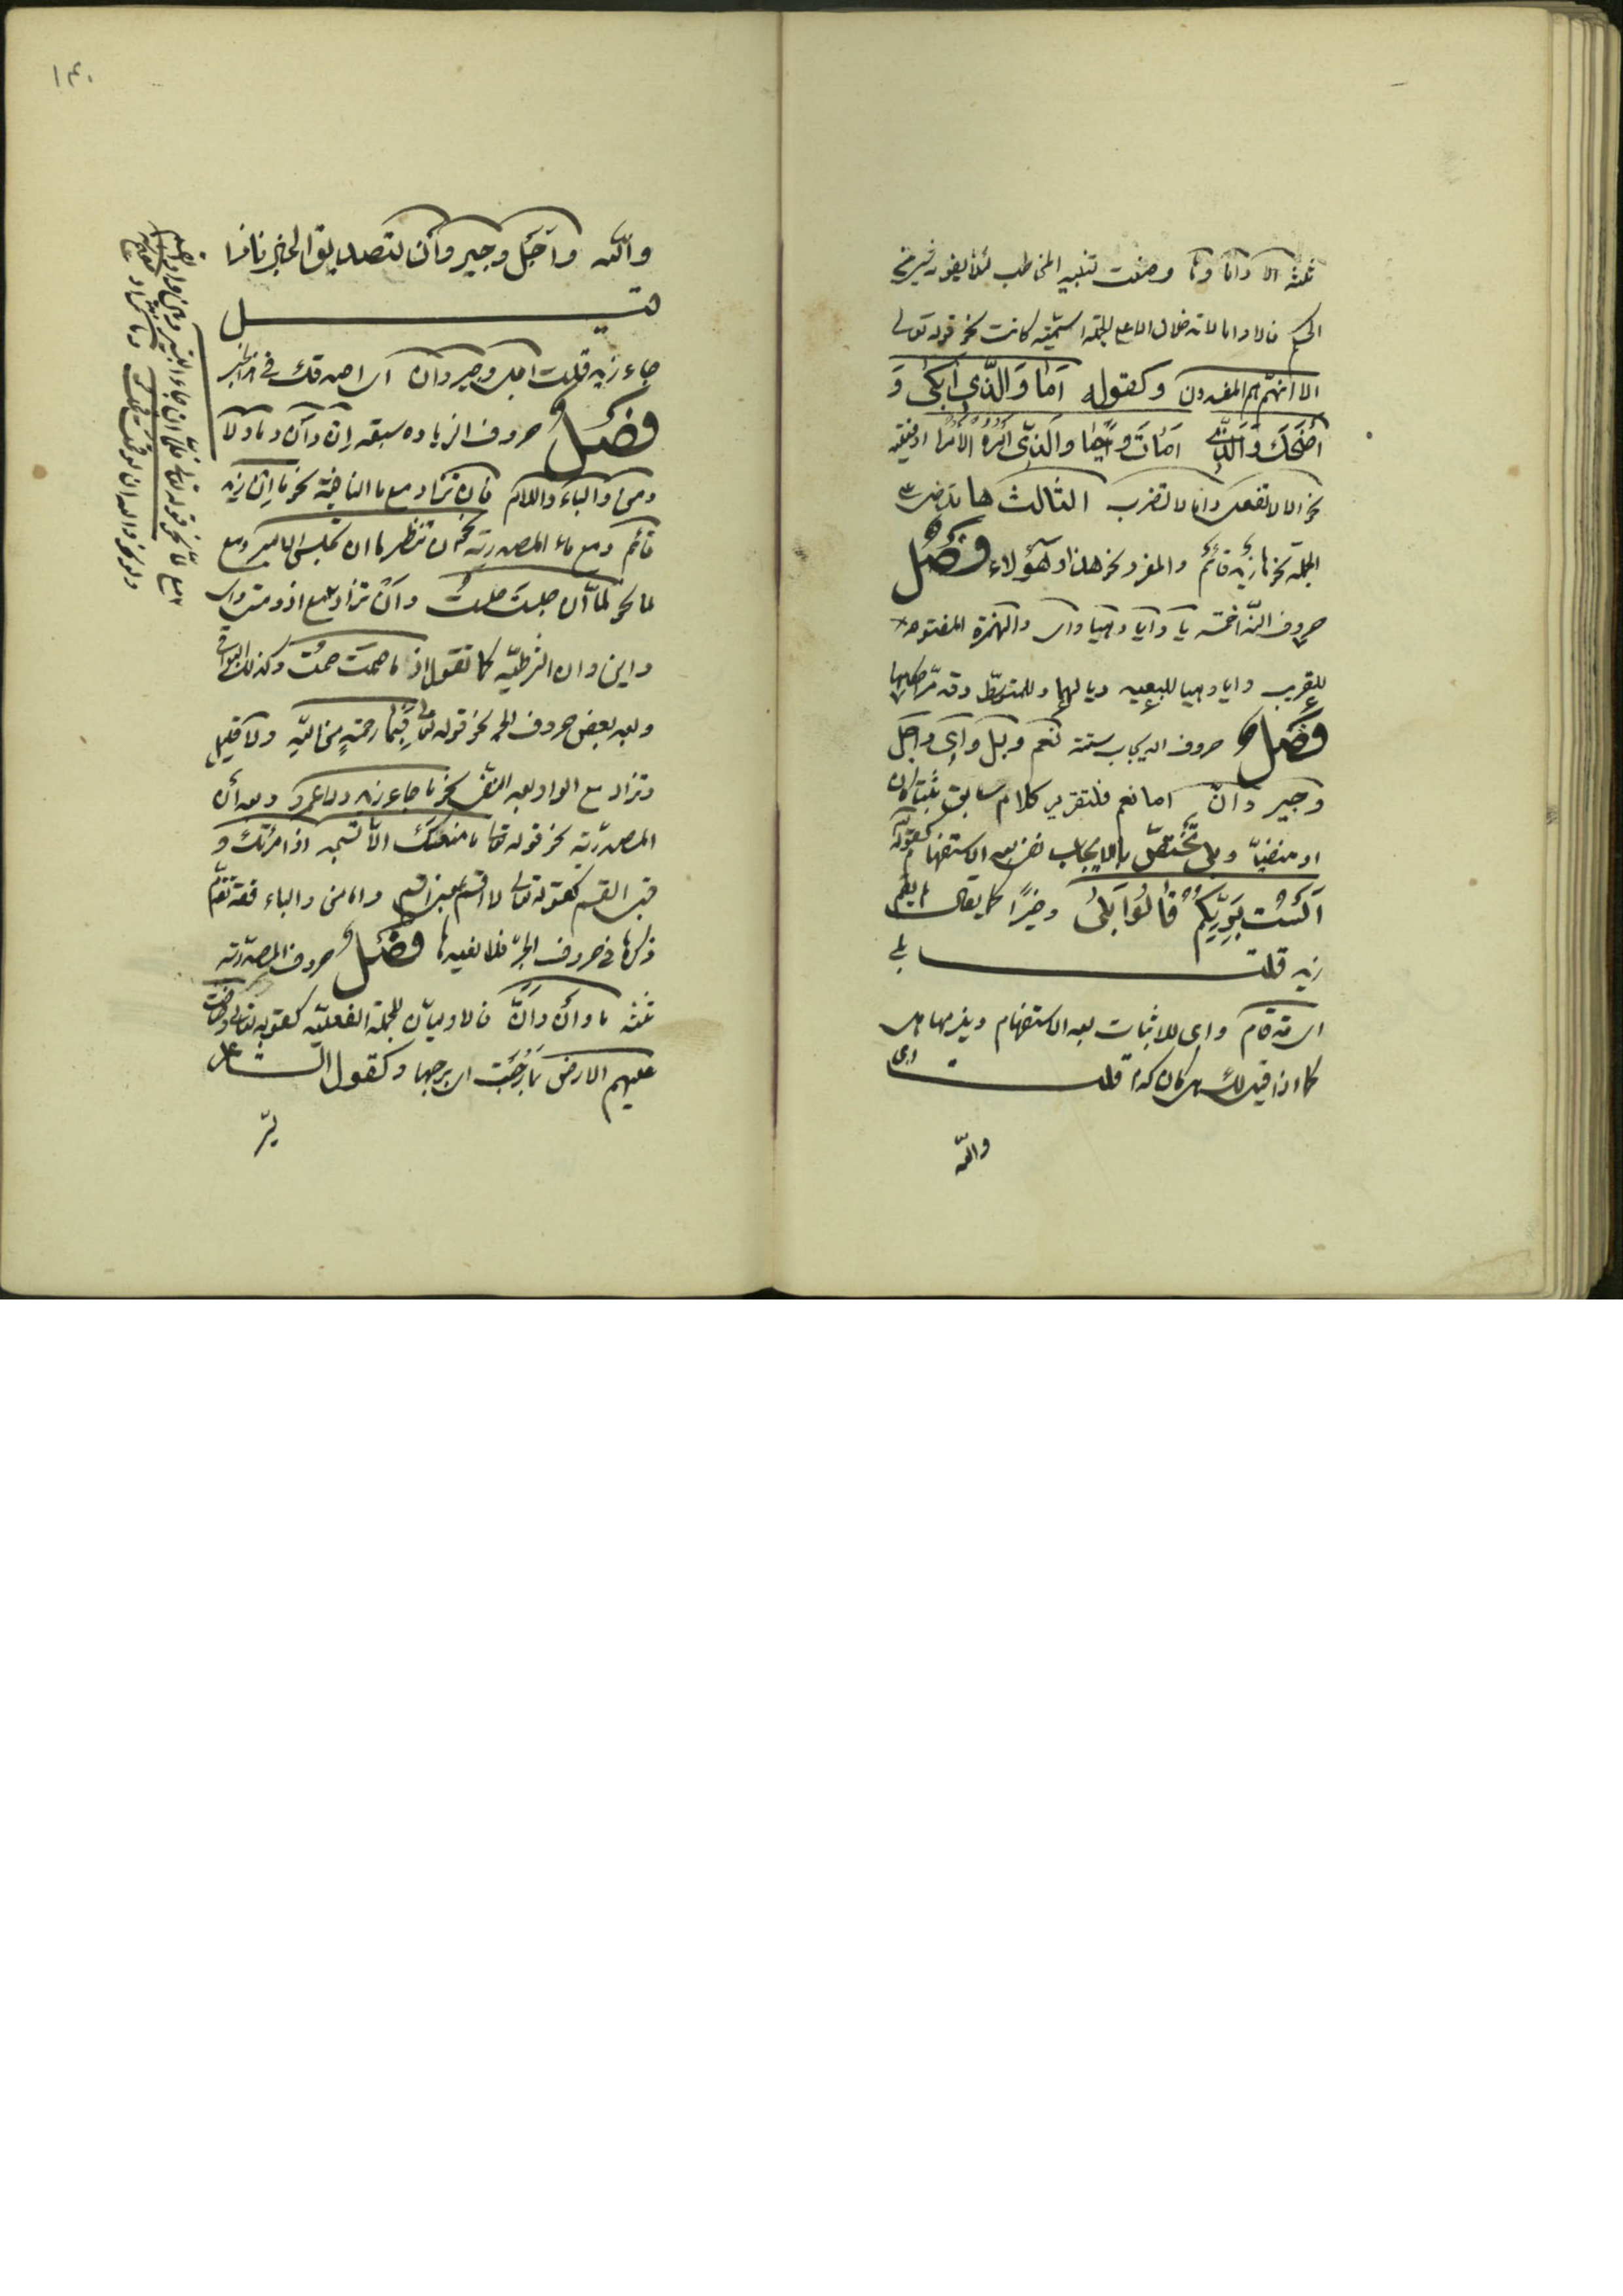 ثلثة الا واما وها وضعت لتنبيه المخاطب لئلا يفوته شئ من
الحكم فالا واما لا تدخلان الا على الجملة اسمية كانت نحو قوله تعالى
الا انهم هم المفسدون وكقوله اما والذي ابكى و
اضحك والذي امات واحيا والذي امره الامر او فعلية
نحو الا لا تفعل واما لا تضرب الثالث ها تدخل على
الجملة نحو ها زيد قائم والمفرد نحو هذا وهؤلاء فصل
حروف النداء خمسة يا وايا وهيا واى والهمزة المفتوحة
للقريب وايا وهيا للبعيد ويا لهما وللمتوسط وقد مر احكامها
فصل حروف الايجاب ستة نعم وبلى واى واجل
وجير وان اما نعم فلتقرير كلام سابق مثبتا كان
او منفيا وبلى تختص بالايجاب نفى بعد الاستفهام كقوله تعالى
الست بربكم قالوا بلى وخبرا كما يقال لم يقم
زيد قلت بلى
اى قد قام واى للاثبات بعد الاستفهام ويلزمها القسم
كما اذا قيل لك هل كان كذا قلت اى
والله
۱۴۰
والله واجل وجير وان لتصديق الخبر فاذا
قيل
جاء زيد قلت اجل وجير وان اى اصدقك في هذا الخبر
فصل حروف الزيادة سبعة ان وان وما ولا
ومن والباء واللام فان تزاد مع ما النافية نحو ما ان زيد
قائم ومع ماء المصدرية نحو انتظر ما ان يجلس الامير ومع
لما نحو لما ان جلست جلست وان تزاد مع اذ ومتى واى
واين وان الشرطية كما تقول اذا ما صمت صمت وكذلك البواقى
وبعد بعض حروف الجر نحو قوله تعالى فبما رحمة من الله ولا قليل
وتزاد مع الواو بعد النفى نحو ما جاء زيد ولا عمرو وبعد ان
المصدرية نحو قوله تعالى ما منعك الا تسجد اذ امرتك و
قبل القسم كقوله تعالى لا اقسم بمعنى اقسم واما من والباء فقد تقدم
ذكرها في حروف الجر فلا نعيدها فصل حروف المصدرية
ثلثة ما وان وان فالاوليان للجملة الفعلية كقوله تعالى وضاقت
عليهم الارض بما رحبت اى برحبها وكقول الشاعر
يسر